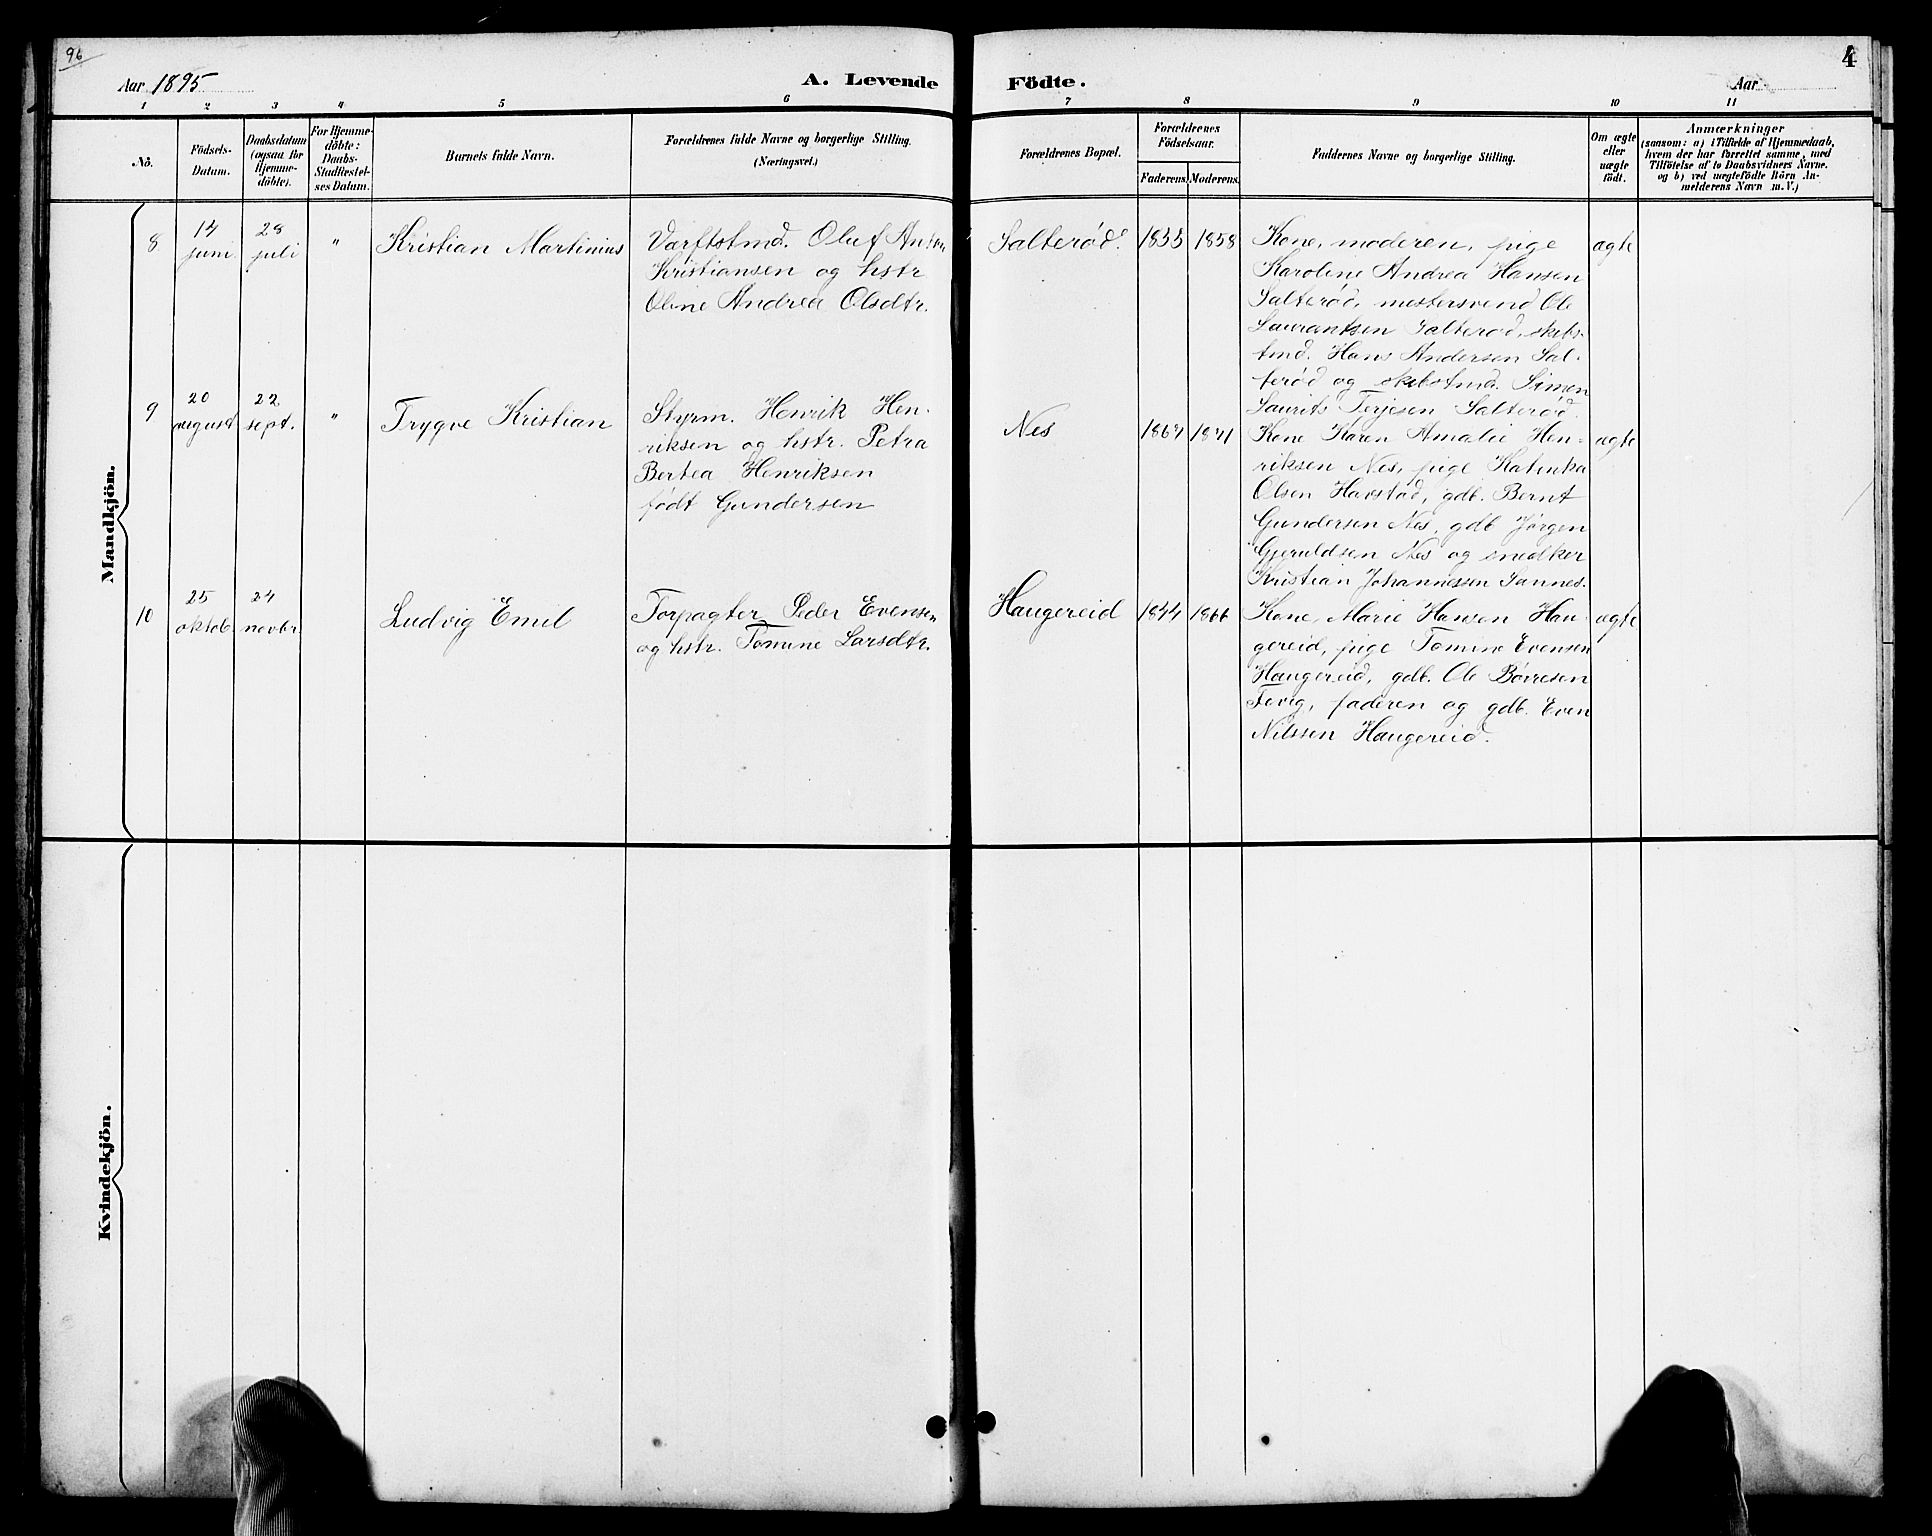 96
4
Aar 1895
A. Levende
Födte.
Aar
1 2 3 4 5 6 7 8 9 10 11
No.
Födsels-
Datum.
Daabsdatum
(ogsaa for
Hjemme-
döbte).
For Hjemme-
döbte:
Daabs-
Stadfæstel-
ses Datum.
Barnets fulde Navn.
Forældrenes fulde Navne og borgerlige Stilling.
(Næringsvei.)
Forældrenes Bopæl.
Forældrenes
Födselsaar.
Faderens. Moderens.
Faddernes Navne og borgerlige Stilling.
Om ægte
eller
uægte
født.
Anmærkninger
(saasom: a) i Tilfælde af Hjemmedaab,
hvem der har forrettet samme, med
Tilföielse af to Daabsvidners Navne.
og b) ved uægtefödte Börn An-
melderens Navn m.V.)
Mandkjön.
8
14
juni
28
juli
"
Kristian Martinius
Værftstmd. Oluf Anton
Kristiansen og hstr
Oline Andrea Olsdtr.
Salterød.
1855 1858
Kone, moderen, pige
Karoline Andrea Hansen
Salterød, mestersvend Ole
Laurantsen Salterød, skibs-
tmd. Hans Andersen Sal-
terød og skibstmd. Simen
Laurits Terjesen Salterød.
ægte
9
20
august
22
sept.
"
Trygve Kristian
Styrm. Henrik Hen-
riksen og hstr. Petra
Bertea Henriksen
født Gundersen
Nes
1867 1871
Kone Karen Amalie Hen-
riksen Nes, pige Katinka
Olsen Havstad, gdb. Bernt
Gundersen Nes, gdb Jørgen
Gjeruldsen Nes og snedker
Kristian Johannesen Sannes.
ægte
10
25
oktob.
24
novbr.
Ludvig Emil
Torpagter Peder Evensen
og hstr. Tomine Larsdtr.
Haugereid
1844 1866
Kone, Marie Hansen Hau-
gereid, pige Tomine Evensen
Haugereid, gdb. Ole Børresen
Fevig, faderen og gdb. Even
Nilssen Haugereid.
ægte
Kvindekjön.